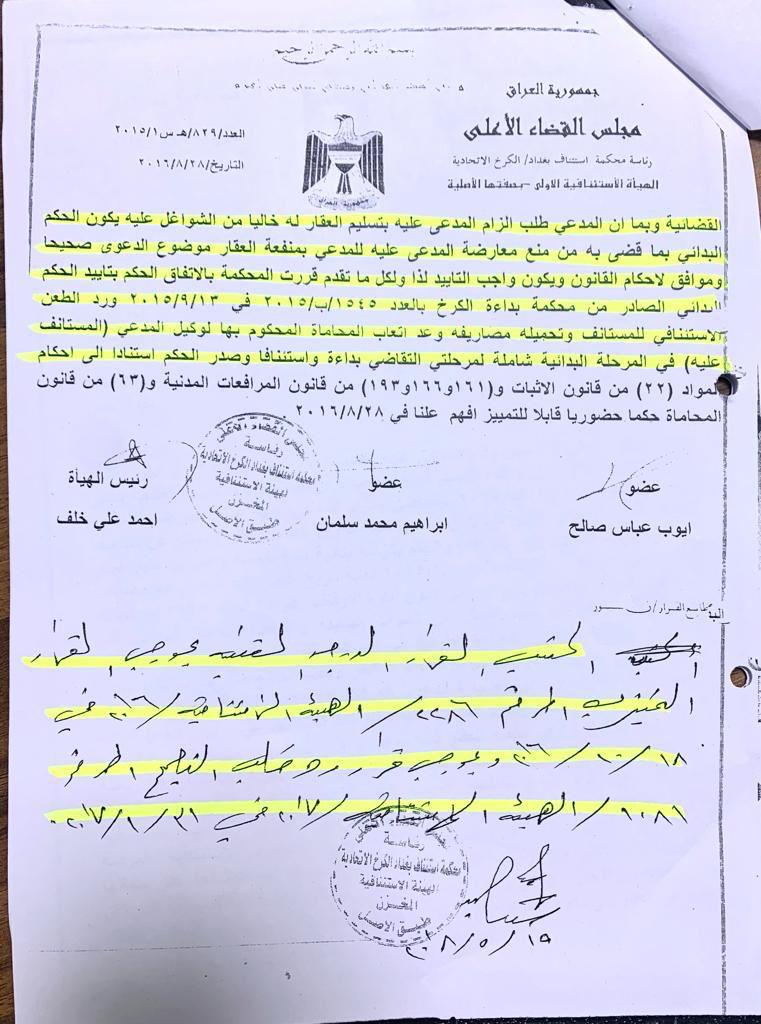 بسم الله الرحمن الرحيم
جمهورية العراق
مجلس القضاء الأعلى
رئاسة محكمة استئناف بغداد/ الكرخ الاتحادية
الهيأة الأستئنافية الاولى -بصفتها الأصلية
العدد/٨٢٩/هـ س٢٠١٥/١
التاريخ/٢٠١٦/٨/٢٨
القضائية وبما ان المدعي طلب الزام المدعى عليه بتسليم العقار له خاليا من الشواغل عليه يكون الحكم
البدائي بما قضى به من منع معارضة المدعى عليه للمدعي بمنفعة العقار موضوع الدعوى صحيحا
وموافق لاحكام القانون ويكون واجب التاييد لذا ولكل ما تقدم قررت المحكمة بالاتفاق الحكم بتاييد الحكم
البدائي الصادر من محكمة بداءة الكرخ بالعدد ١٥٤٥/ب/٢٠١٥ في ٢٠١٥/٩/١٣ ورد الطعن
الاستئنافي للمستانف وتحميله مصاريفه وعد اتعاب المحاماة المحكوم بها لوكيل المدعي (المستانف
عليه) في المرحلة البدائية شاملة لمرحلتي التقاضي بداءة واستئنافا وصدر الحكم استنادا الى احكام
المواد (٢٢) من قانون الاثبات و(١٦١و١٦٦و١٩٣) من قانون المرافعات المدنية و(٦٣) من قانون
المحاماة حكما حضوريا قابلا للتمييز افهم علنا في ٢٠١٦/٨/٢٨
عضو
ايوب عباس صالح
عضو
ابراهيم محمد سلمان
رئيس الهيأة
احمد علي خلف
مجلس القضاء الاعلى
رئاسة
محكمة استئناف بغداد الكرخ الاتحادية
الهيئة الاستئنافية
المخزن
طبق الاصل
اكتسب القرار الدرجة القطعية بموجب القرار
التمييزي المرقم ٢٢٨٦/الهيئة الاستئنافية/٢٠١٦ في
٢٠١٦/١٠/١٨ وبموجب قرار رد طلب التصحيح المرقم
/الهيئة الاستئنافية/٢٠١٧ في ٢٠١٧/١/٣١
رئاسة
محكمة استئناف بغداد الكرخ الاتحادية
الهيئة الاستئنافية
المخزن
طبق الاصل
٢٠١٨/٥/١٥